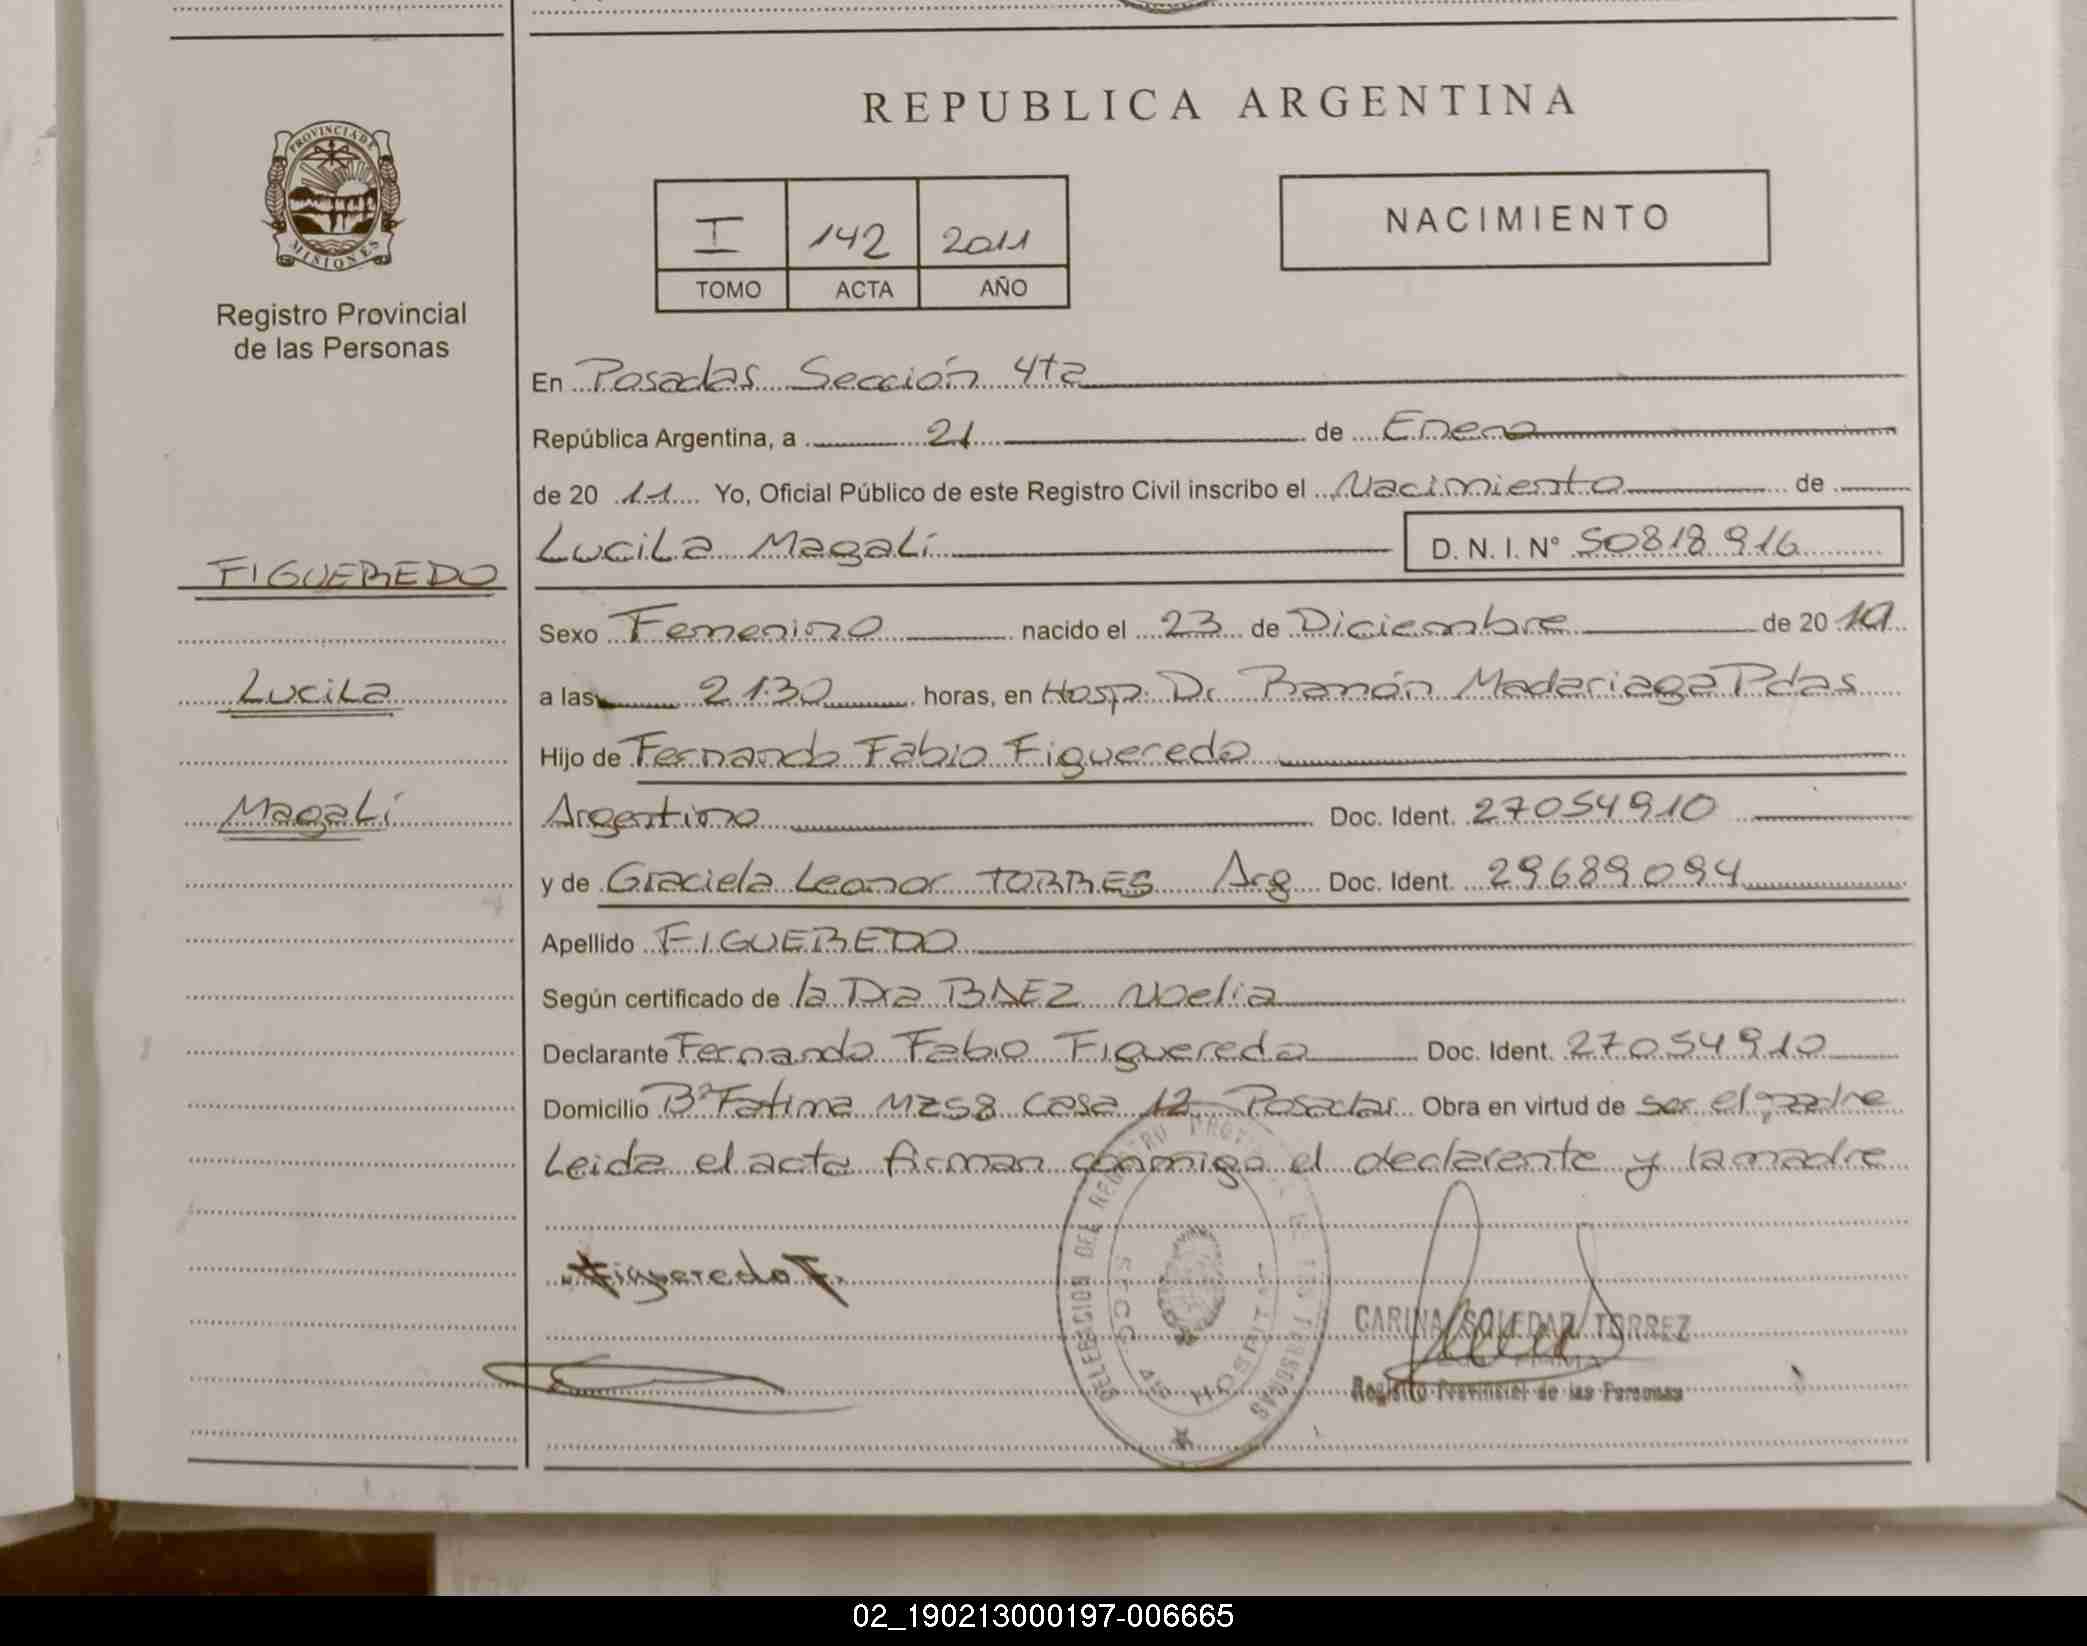 REPUBLICA ARGENTINA
PROVINCIA DE
MISIONES
Registro Provincial
de las Personas
I 142 2011
TOMO ACTA AÑO
NACIMIENTO
En Posadas Sección 4ta
República Argentina, a 21 de Enero
de 20 11 Yo, Oficial Público de este Registro Civil inscribo el Nacimiento de
Lucila Magalí D. N. I. N° 50818916
FIGUEREDO
Lucila
Magalí
Sexo Femenino nacido el 23 de Diciembre de 20 10
a las 21:30 horas, en Hosp. Dr. Ramón Madariaga Pdas
Hijo de Fernando Fabio Figueredo
Argentino Doc. Ident. 27054910
y de Graciela Leonor TORRES Arg Doc. Ident. 29689094
Apellido FIGUEREDO
Según certificado de la Dra BAEZ Noelia
Declarante Fernando Fabio Figueredo Doc. Ident. 27054910
Domicilio B° Fatima MZ58 casa 12 Posadas Obra en virtud de ser el padre
Leida el acta firman conmigo el declarente y la madre
Figueredo F.
DELEGACION DEL REGISTRO PROVINCIAL DE LAS PERSONAS
SECC. 4ta HOSPITAL
CARINA SOLEDAD TORREZ
Registro Provincial de las Personas
02_190213000197-006665